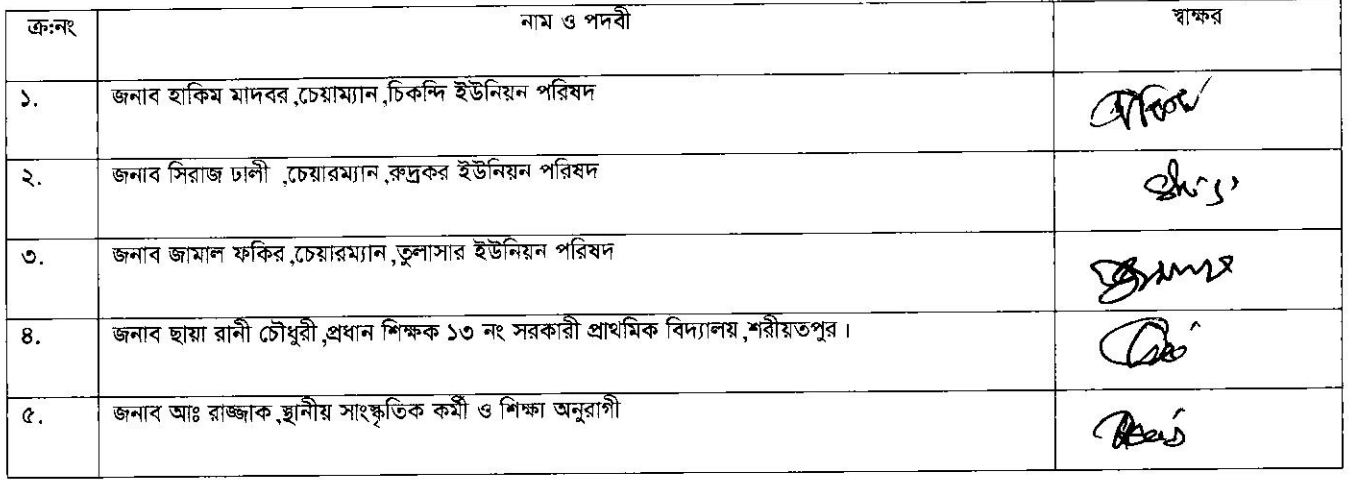 ক্র:নং নাম ও পদবী স্বাক্ষর
১. জনাব হাকিম মাদবর ,চেয়াম্যান ,চিকন্দি ইউনিয়ন পরিষদ
২. জনাব সিরাজ ঢালী ,চেয়ারম্যান ,রুদ্রকর ইউনিয়ন পরিষদ
৩. জনাব জামাল ফকির ,চেয়ারম্যান ,তুলাসার ইউনিয়ন পরিষদ
৪. জনাব ছায়া রানী চৌধুরী ,প্রধান শিক্ষক ১৩ নং সরকারী প্রাথমিক বিদ্যালয় ,শরীয়তপুর ।
৫. জনাব আঃ রাজ্জাক ,স্থানীয় সাংস্কৃতিক কর্মী ও শিক্ষা অনুরাগী